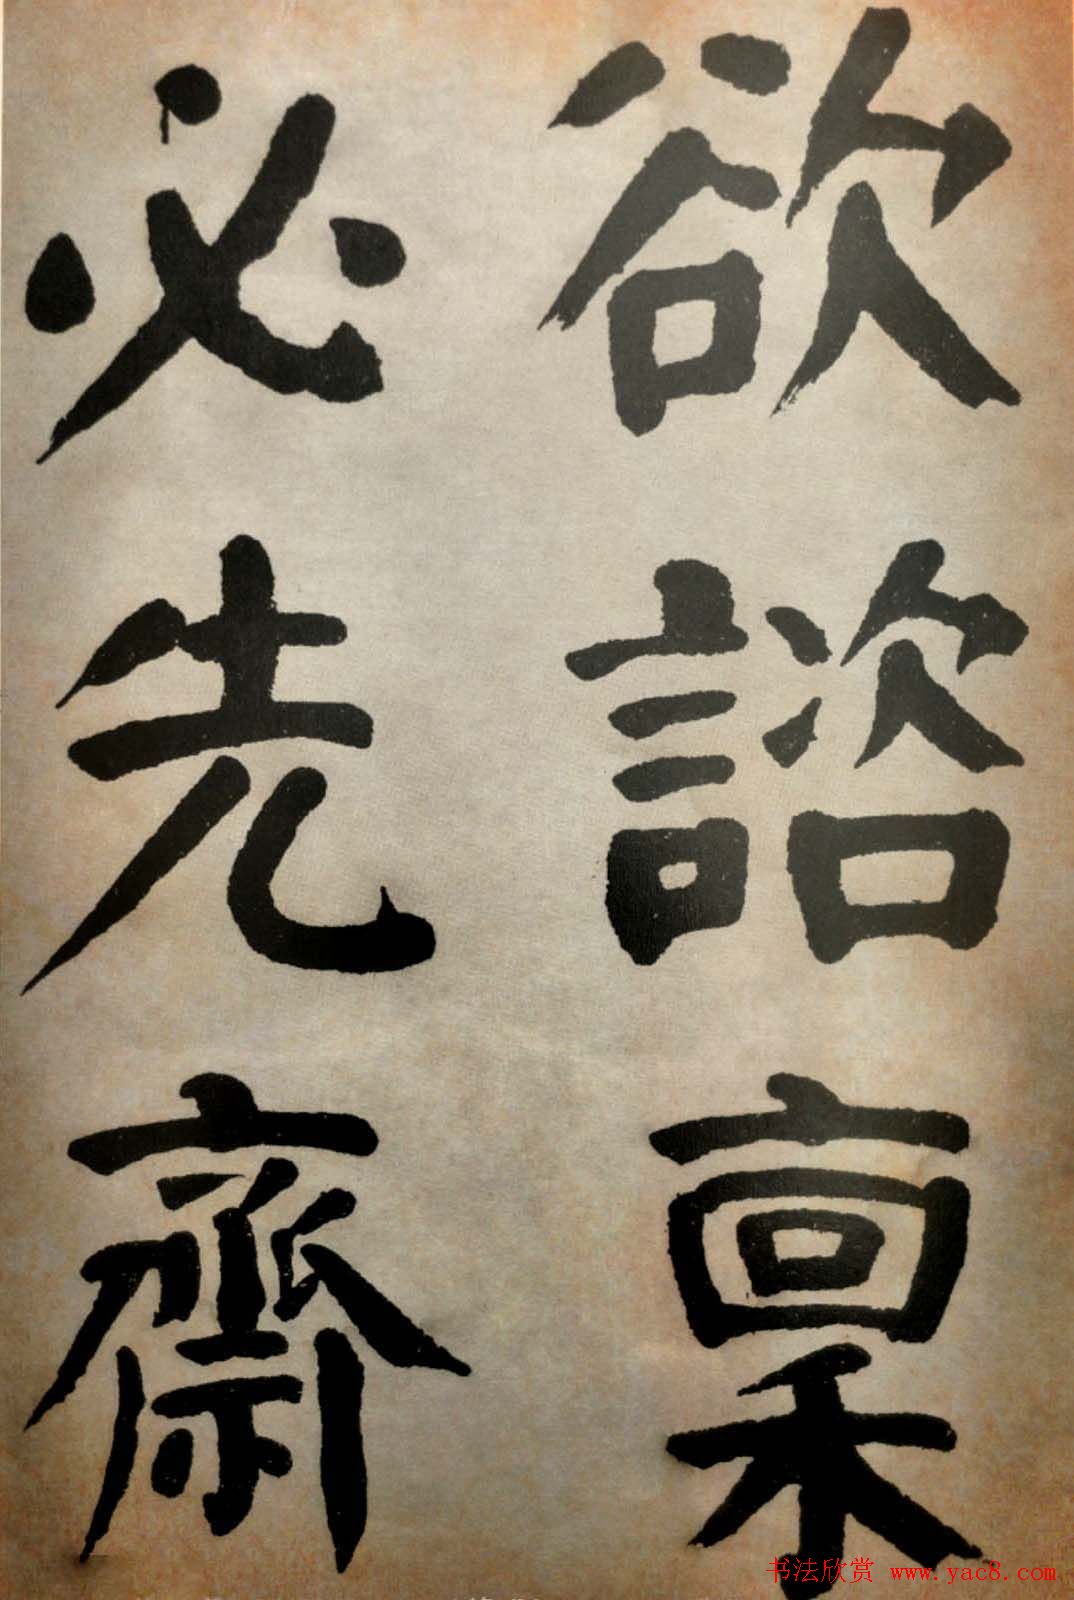 欲諮稟
必先齋
书法欣赏 www.yac8.com